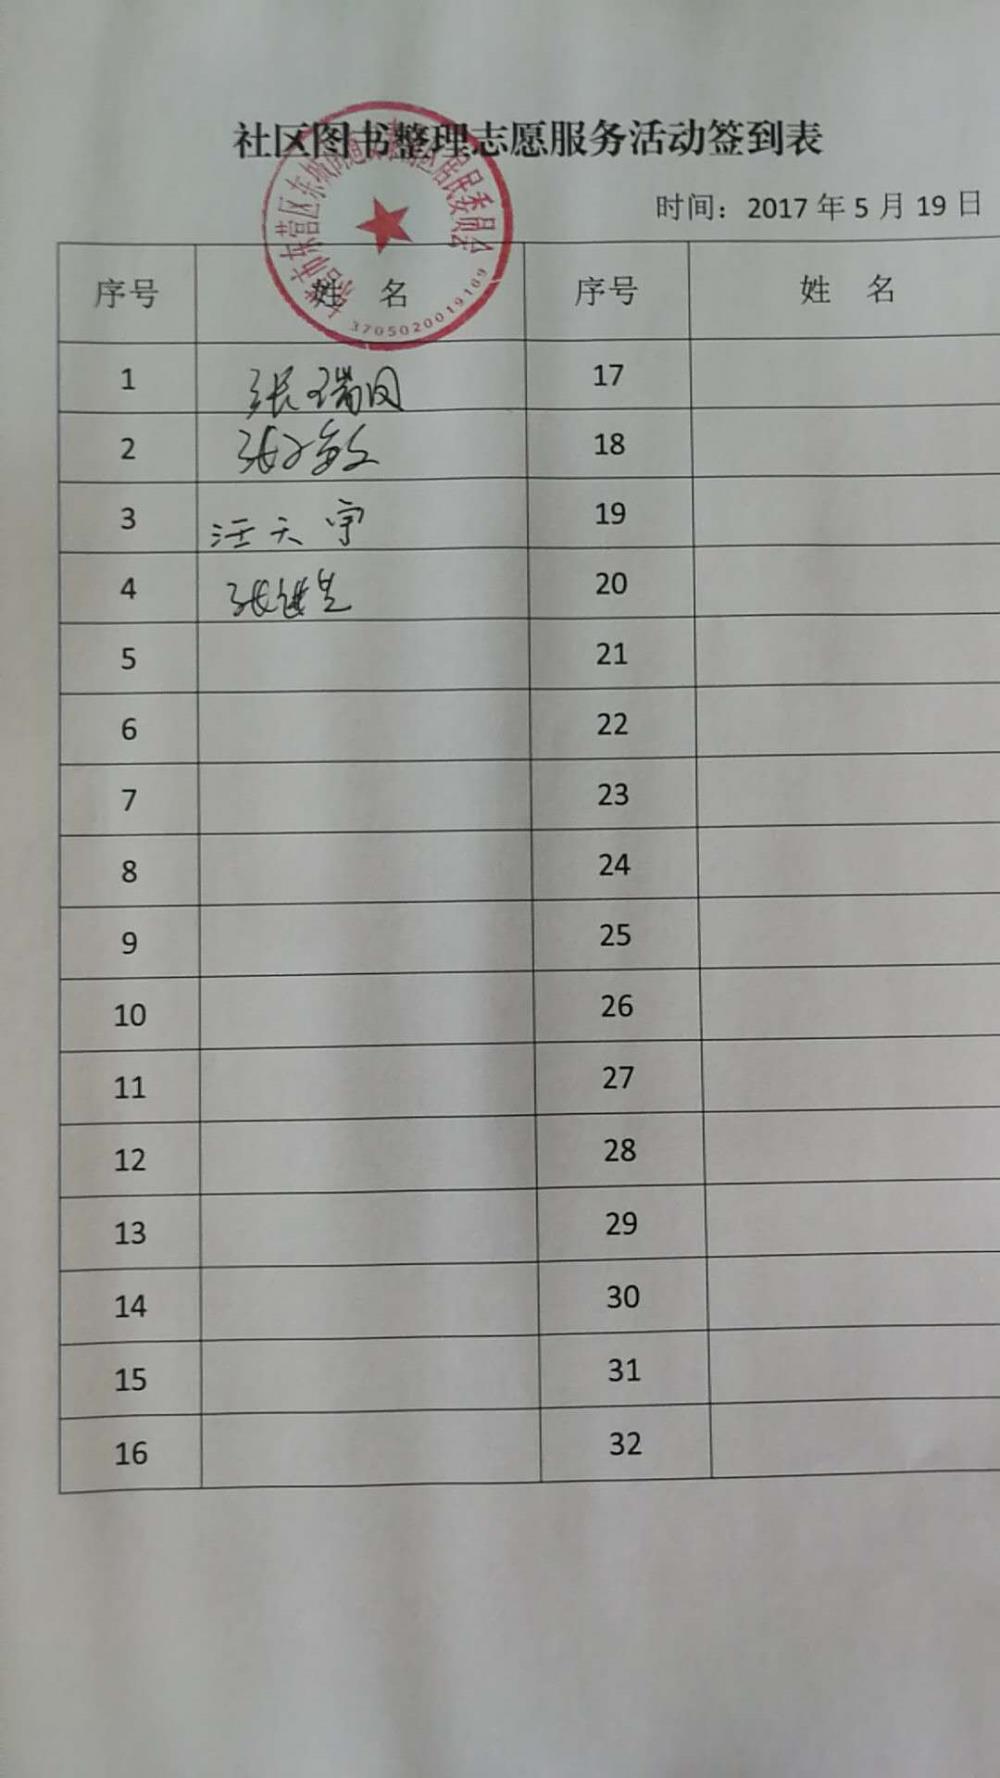 社区图书整理志愿服务活动签到表
时间：2017年5月19日
序号 姓 名 序号 姓 名
3705020019109
1 张瑞 17
2 张 敏 18
3 汪天宇 19
4 张 20
5 21
6 22
7 23
8 24
9 25
10 26
11 27
12 28
13 29
14 30
15 31
16 32